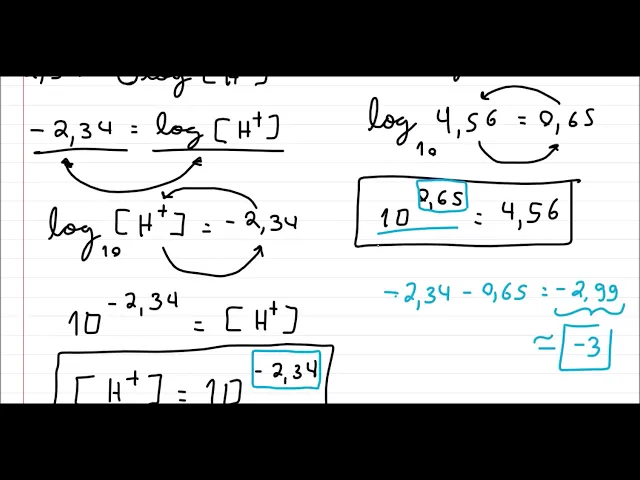 -2,34 = log [H⁺]
log₁₀ [H⁺] = -2,34
10^-2,34 = [H⁺]
[H⁺] = 10^-2,34
log₁₀ 4,56 = 0,65
10^0,65 = 4,56
-2,34 - 0,65 = -2,99
≈ -3